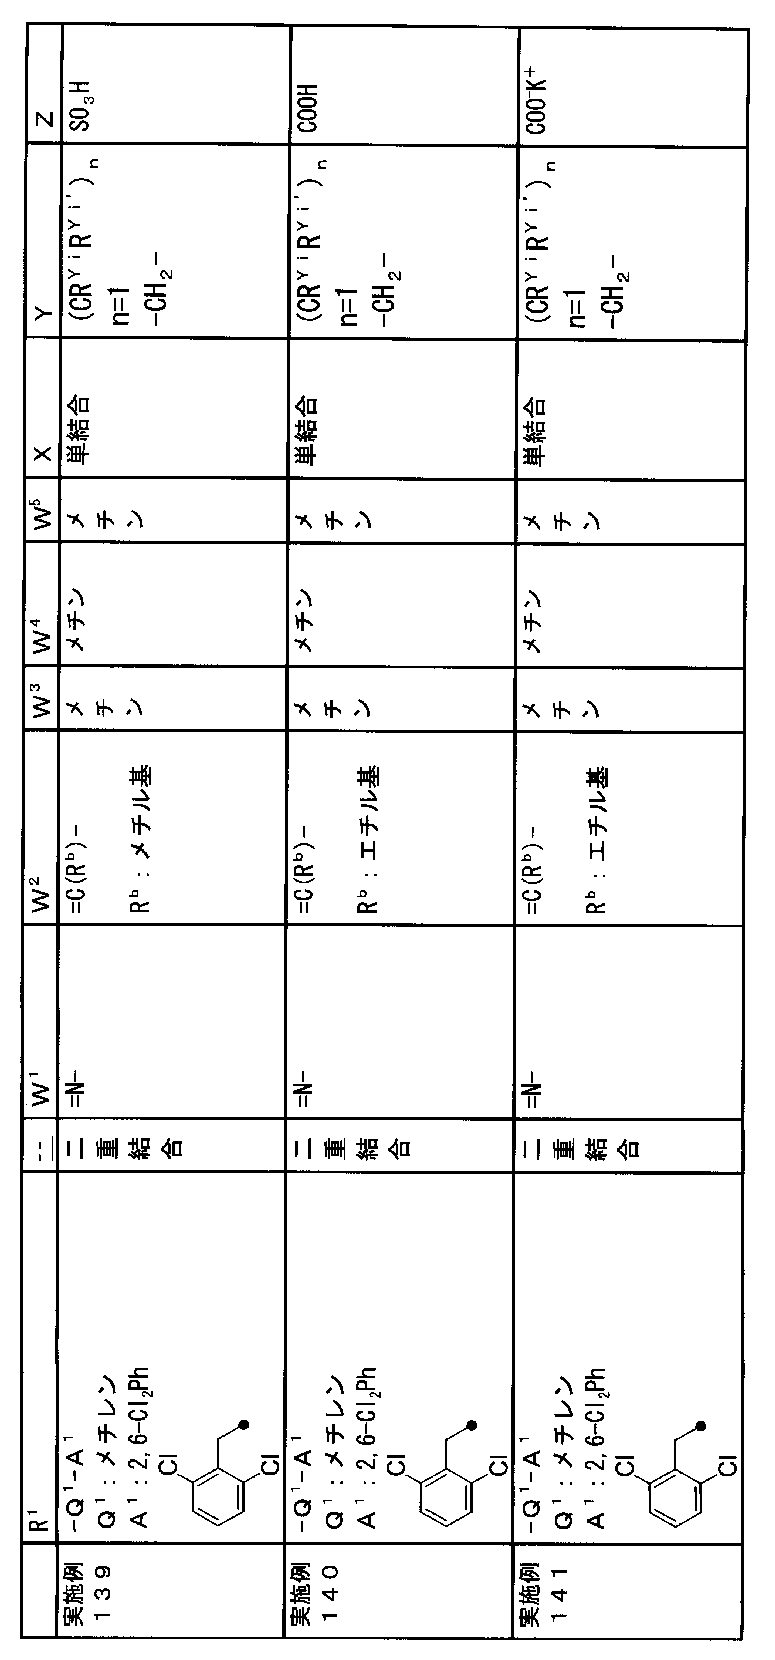 R¹ ⚋ W¹ W² W³ W⁴ W⁵ X Y Z
実施例
139
-Q¹-A¹
Q¹：メチレン
A¹：2,6-Cl₂Ph
Cl
Cl
二重結合
=N-
=C(Rᵇ)-
Rᵇ：メチル基
メチン
メチン
メチン
単結合
(CRʸⁱRʸⁱ')ₙ
n=1
-CH₂-
SO₃H
実施例
140
-Q¹-A¹
Q¹：メチレン
A¹：2,6-Cl₂Ph
Cl
Cl
二重結合
=N-
=C(Rᵇ)-
Rᵇ：エチル基
メチン
メチン
メチン
単結合
(CRʸⁱRʸⁱ')ₙ
n=1
-CH₂-
COOH
実施例
141
-Q¹-A¹
Q¹：メチレン
A¹：2,6-Cl₂Ph
Cl
Cl
二重結合
=N-
=C(Rᵇ)-
Rᵇ：エチル基
メチン
メチン
メチン
単結合
(CRʸⁱRʸⁱ')ₙ
n=1
-CH₂-
COO⁻K⁺